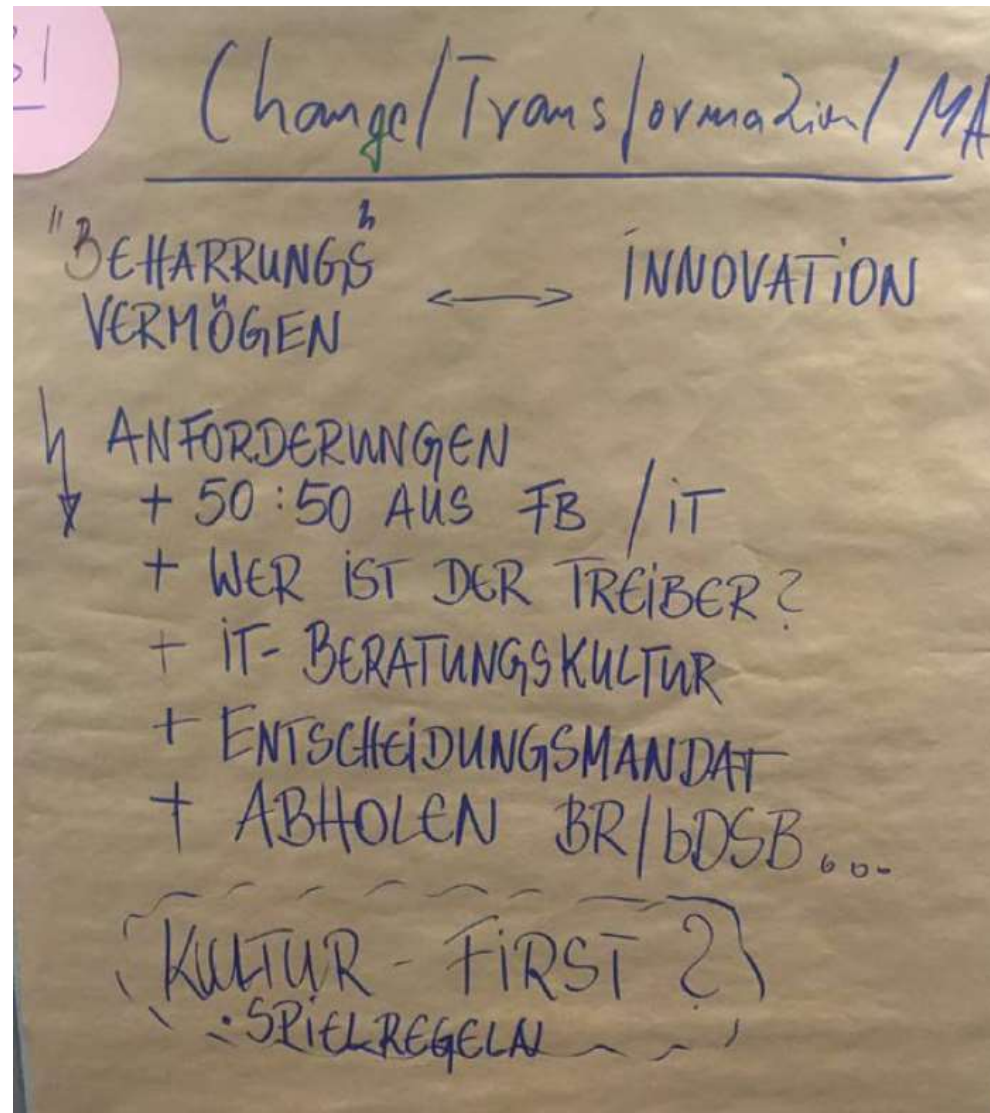 Change/Transformation/MA
"BEHARRUNGS"
VERMÖGEN <-> INNOVATION
ANFORDERUNGEN
+ 50:50 AUS FB / IT
+ WER IST DER TREIBER?
+ IT-BERATUNGSKULTUR
+ ENTSCHEIDUNGSMANDAT
+ ABHOLEN BR/bDSB...
KULTUR - FIRST ?
• SPIELREGELN